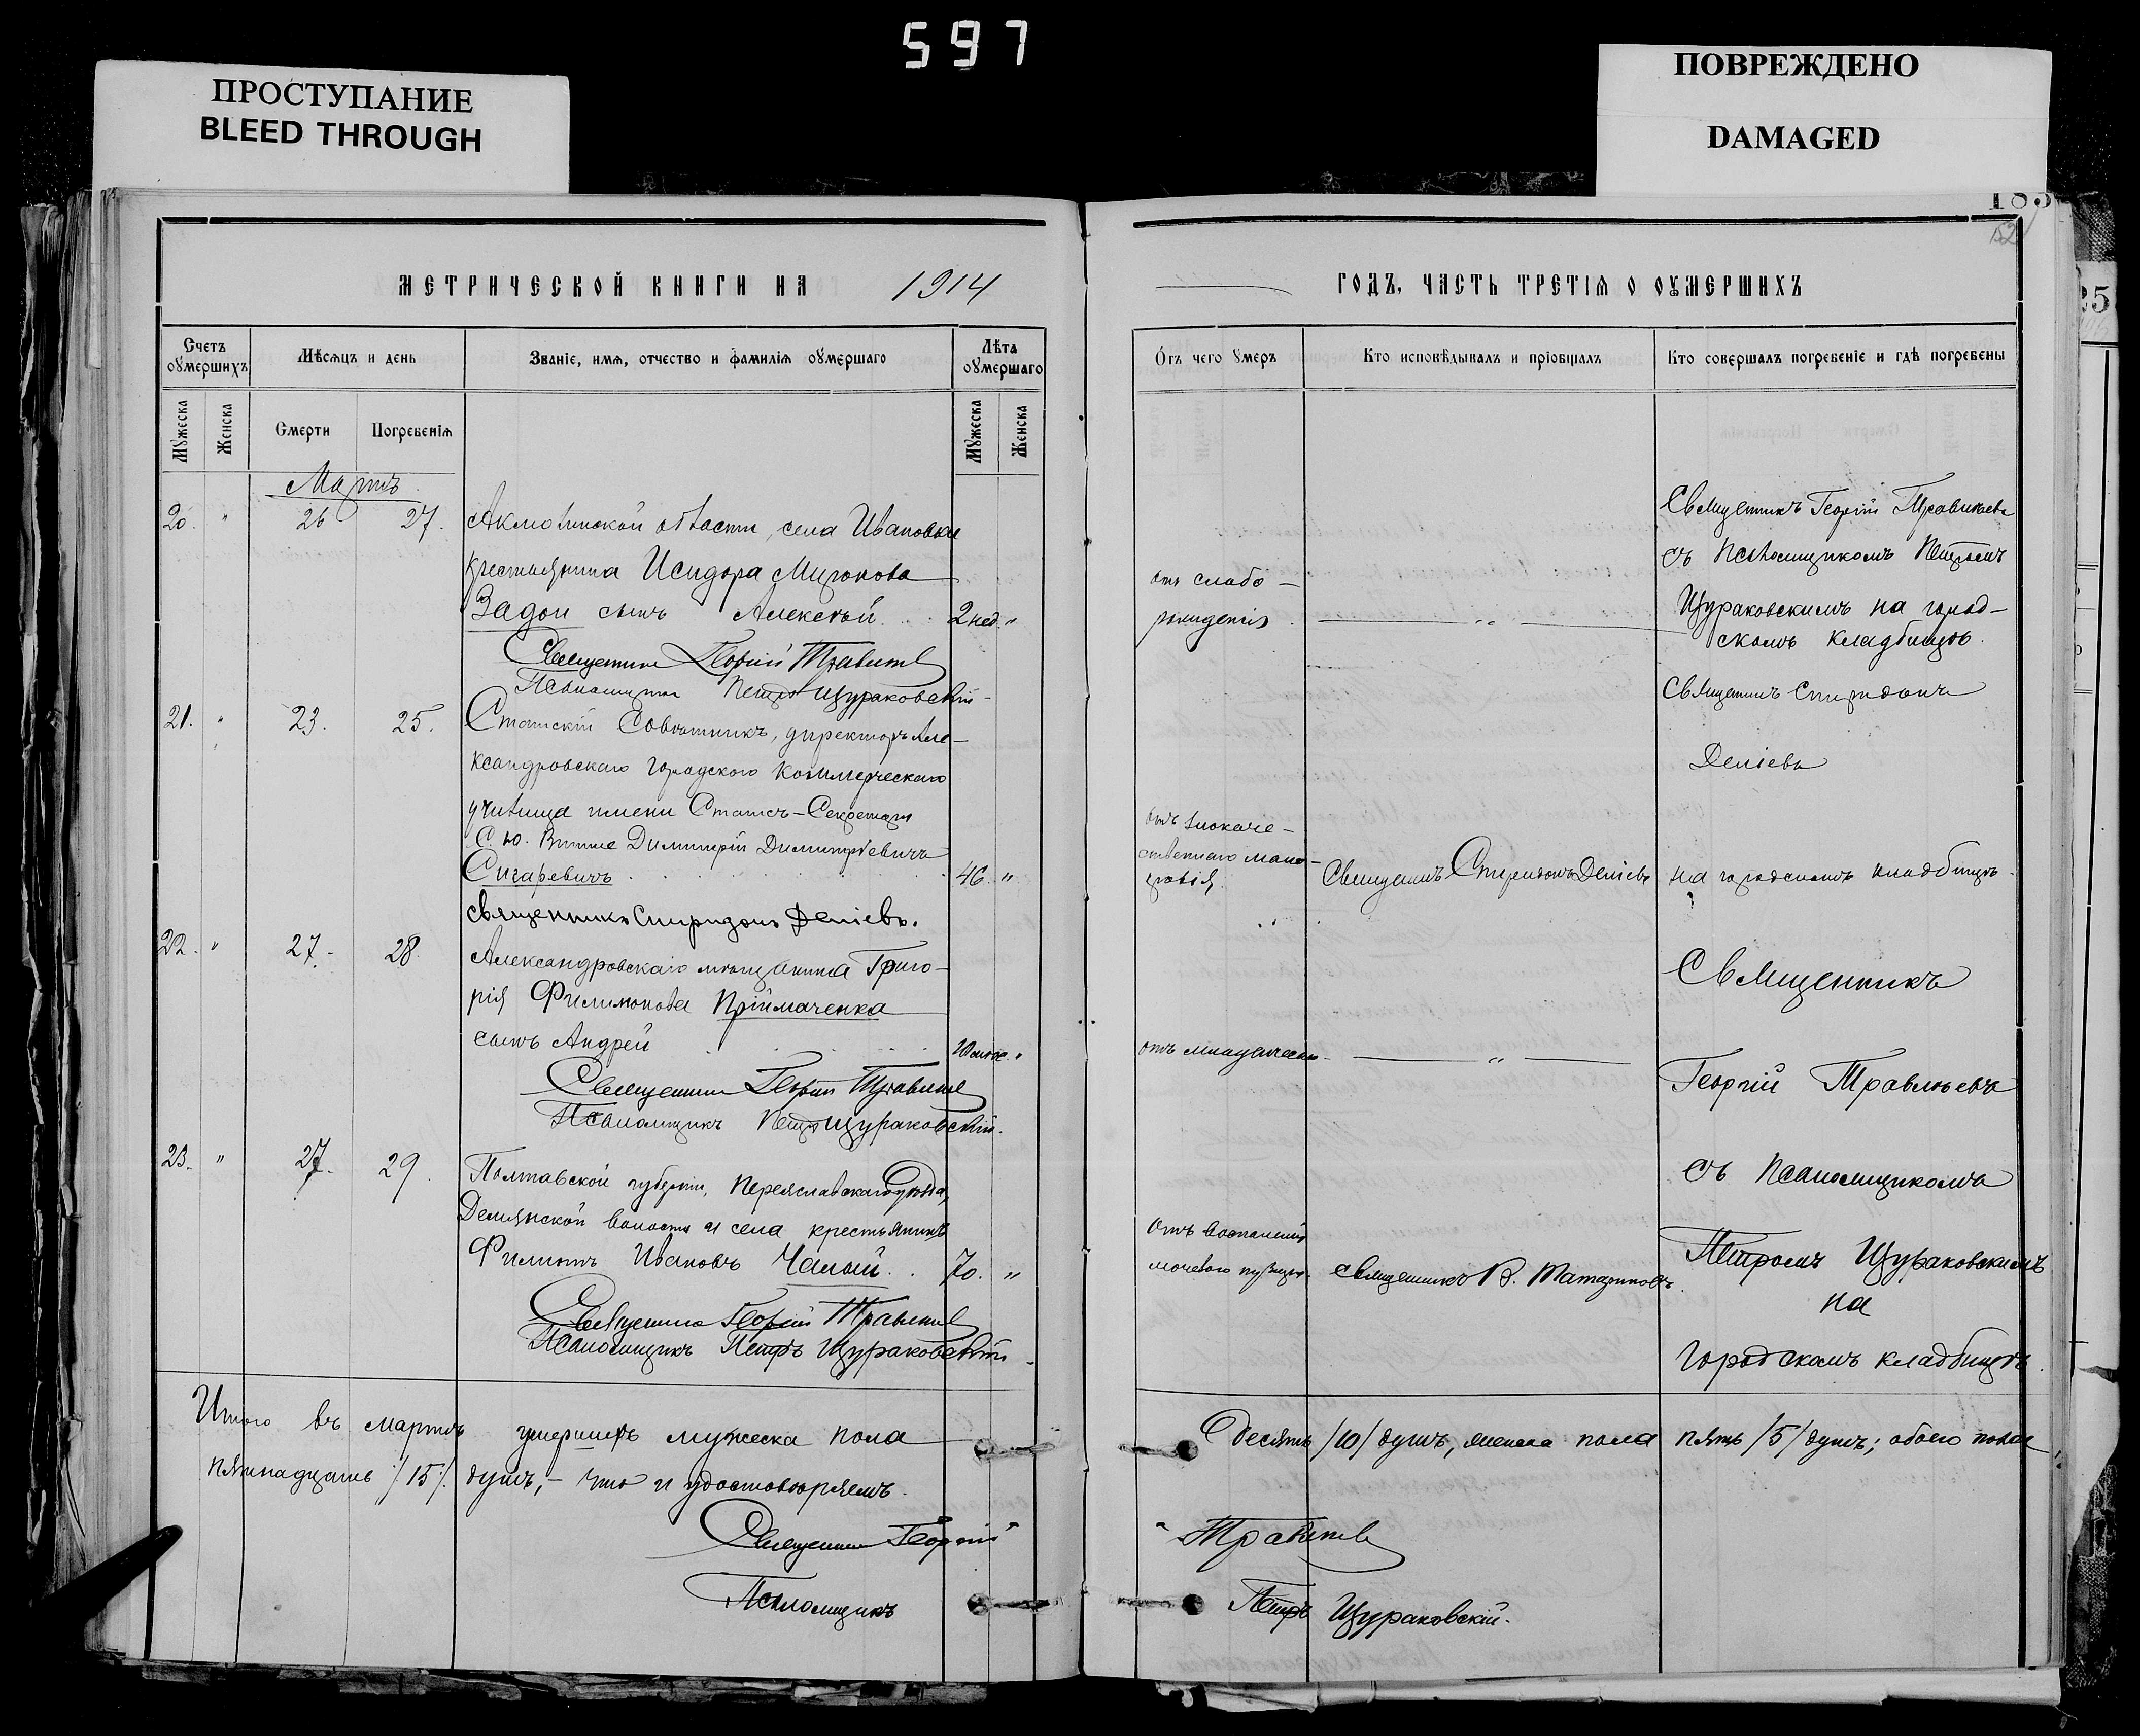 597
ПРОСТУПАНИЕ
BLEED THROUGH
ПОВРЕЖДЕНО
DAMAGED
185
152
25
МЕТРИЧЕСКОЙ КНИГИ НА 1914
Счетъ оумершихъ
Мѣсяцъ и день
Званіе, имя, отчество и фамилія оумершаго
Лѣта оумершаго
Мужеска
Женска
Смерти
Погребенія
Мужеска
Женска
Мартъ
20. " 26 27. Акмолинской области, села Ивановки
крестьянина Исидора Миронова
Задои сынъ Алексѣй 2 нед. "
Священник Георгий Травинев
Псаломщик Петръ Щураковскій
21. " 23. 25. Статскій Совѣтникъ, директоръ Але-
ксандровскаго городского коммерческаго
училища имени Статсъ-Секретаря
С. Ю. Витте Димитрій Димитріевичъ
Сигаревичъ 46. "
священникъ Спиридонъ Деліевъ.
22. " 27. 28. Александровскаго мѣщанина Григо-
рія Филимонова Пріймаченка
сынъ Андрей "
Священник Георгий
Псаломщикъ Петръ Щураковскій.
23. " 27. 29. Полтавской губерніи, Переяславскаго уѣзда,
Демянской волости и села крестьянинъ
Филиппъ Ивановъ Чалый. . 70. "
Священник Георгій
Псаломщикъ Петръ Щураковскій
Итого въ мартѣ умершихъ мужеска пола
пятнадцать /15/ душъ, - что и удостовѣряемъ.
Священник Георгій
Псаломщикъ
ГОДЪ, ЧАСТЬ ТРЕТІЯ О ОУМЕРШИХЪ
Отъ чего умеръ
Кто исповѣдывалъ и пріобщалъ
Кто совершалъ погребеніе и гдѣ погребены
отъ слабо-
рожденія
Священникъ Георгій
съ псаломщикомъ Петромъ
Щураковскимъ на город-
скомъ кладбищѣ.
Священникъ Спиридонъ
Деліевъ
отъ злокаче-
ственнаго мало-
кровія.
Священникъ Спиридонъ Деліевъ
на городскомъ кладбищѣ.
Священникъ
отъ младенческ.
Георгій
съ псаломщикомъ
отъ воспаленія
мочевого пузыря.
Священникъ В. Татариновъ.
Петромъ Щураковскимъ
на
городскомъ кладбищѣ.
Десять /10/ душъ, женска пола пять /5/ душъ; обоего пола
Петръ Щураковскій.